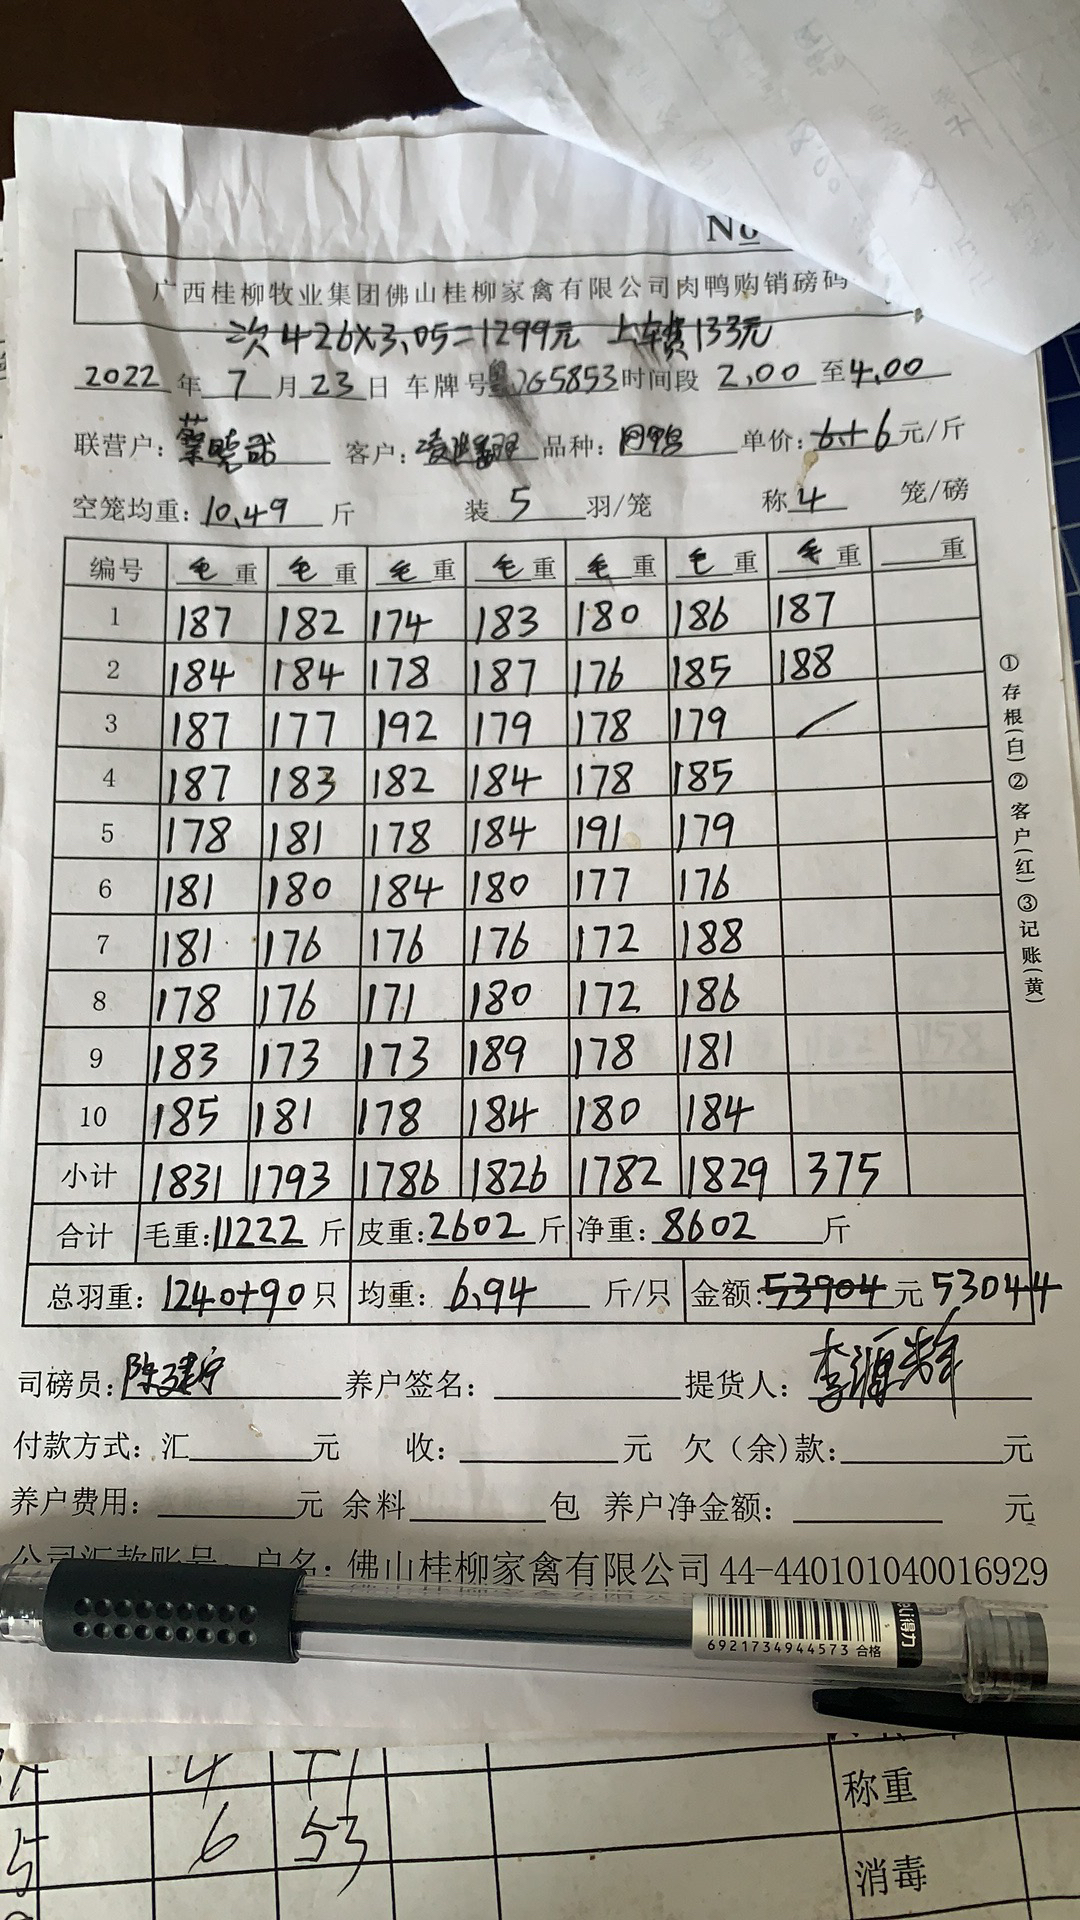 No
广西桂柳牧业集团佛山桂柳家禽有限公司肉鸭购销磅码
次 426×3.05=1299元 上车费133元
2022 年 7 月 23 日 车牌号 粤 G5853 时间段 2.00 至 4.00
联营户: 蔡 客户: 品种: 肉鸭 单价: 6 元/斤
空笼均重: 10.49 斤 装 5 羽/笼 称 4 笼/磅
编号 毛重 毛重 毛重 毛重 毛重 毛重 毛重 重
1 187 182 174 183 180 186 187
2 184 184 178 187 176 185 188
3 187 177 192 179 178 179 /
4 187 183 182 184 178 185
5 178 181 178 184 191 179
6 181 180 184 180 177 176
7 181 176 176 176 172 188
8 178 176 171 180 172 186
9 183 173 173 189 178 181
10 185 181 178 184 180 184
小计 1831 1793 1786 1826 1782 1829 375
合计 毛重: 11222 斤 皮重: 2602 斤 净重: 8602 斤
总羽重: 1240+90 只 均重: 6.94 斤/只 金额: 53904 元 53044
①存根(白)②客户(红)③记账(黄)
司磅员: 陈建宇 养户签名: 提货人: 李源辉
付款方式: 汇 元 收: 元 欠(余)款: 元
养户费用: 元 余料 包 养户净金额: 元
公司汇款账号: 户名: 佛山桂柳家禽有限公司 44-440101040016929
得力
6921734944573 合格
4
称重
5 6 53
消毒